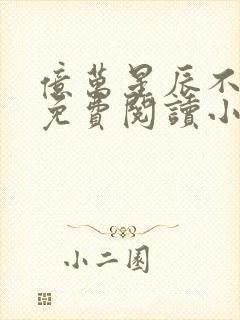 億萬星辰不
免費閱讀小
小二園